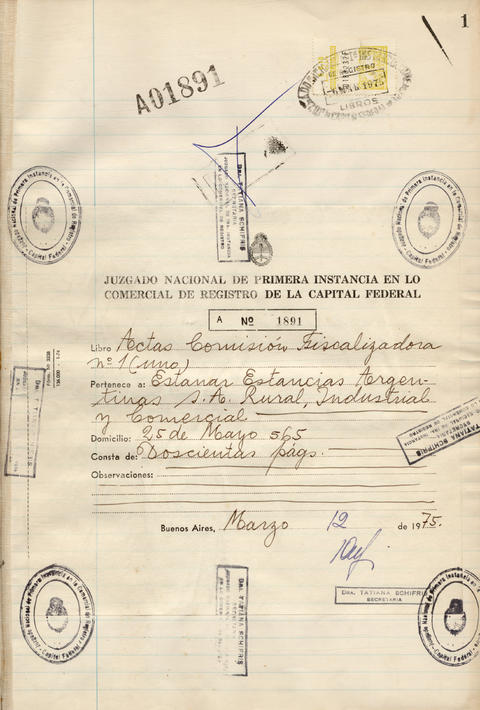 1
A01891
LIBROS
JUZGADO NACIONAL DE PRIMERA INSTANCIA EN LO
COMERCIAL DE REGISTRO DE LA CAPITAL FEDERAL
A Nº 1891
Libro Actas Comisión Fiscalizadora
nº 1 (uno)
Pertenece a: Estanar Estancias Argen-
tinas S.A. Rural, Industrial
y Comercial
Domicilio: 25 de Mayo 565
Consta de: Doscientas págs.
Observaciones:
Buenos Aires, Marzo 12 de 1975.
Dra. TATIANA SCHIFRIS
SECRETARIA